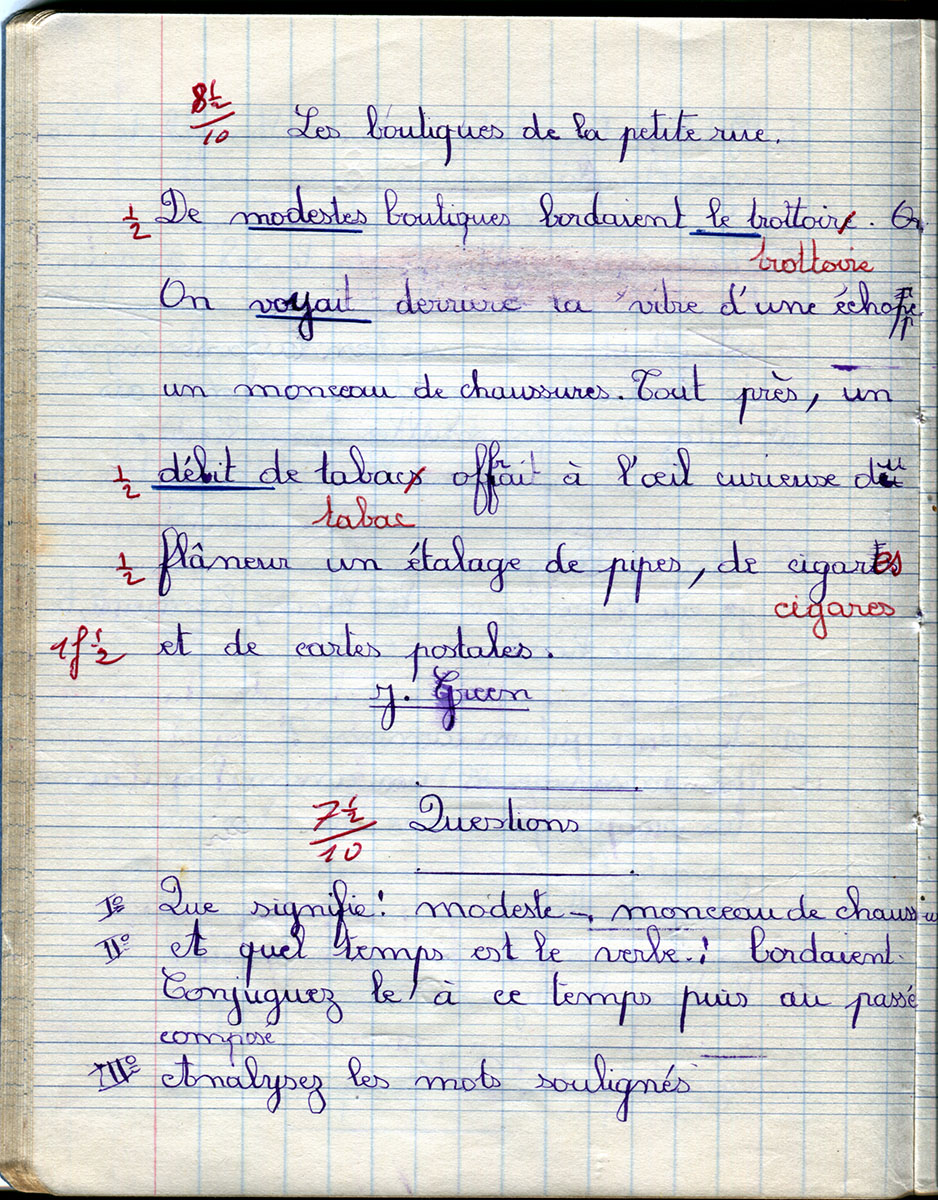 8 1/2
10 Les boutiques de la petite rue.
1/2 De modestes boutiques bordaient le trottoir. On
trottoire
On voyait derrière la vitre d'une échoppe
un monceau de chaussures. Tout près, un
1/2 débit de tabac offrait à l'œil curieuse du
tabac
1/2 flâneur un étalage de pipes, de cigares
cigares
1f 1/2 et de cartes postales.
J. Green
7 1/2
10 Questions
I° Que signifie : modeste -, monceau de chauss
II° A quel temps est le verbe : bordaient.
Conjuguez le à ce temps puis au passé
composé
III° Analysez les mots soulignés